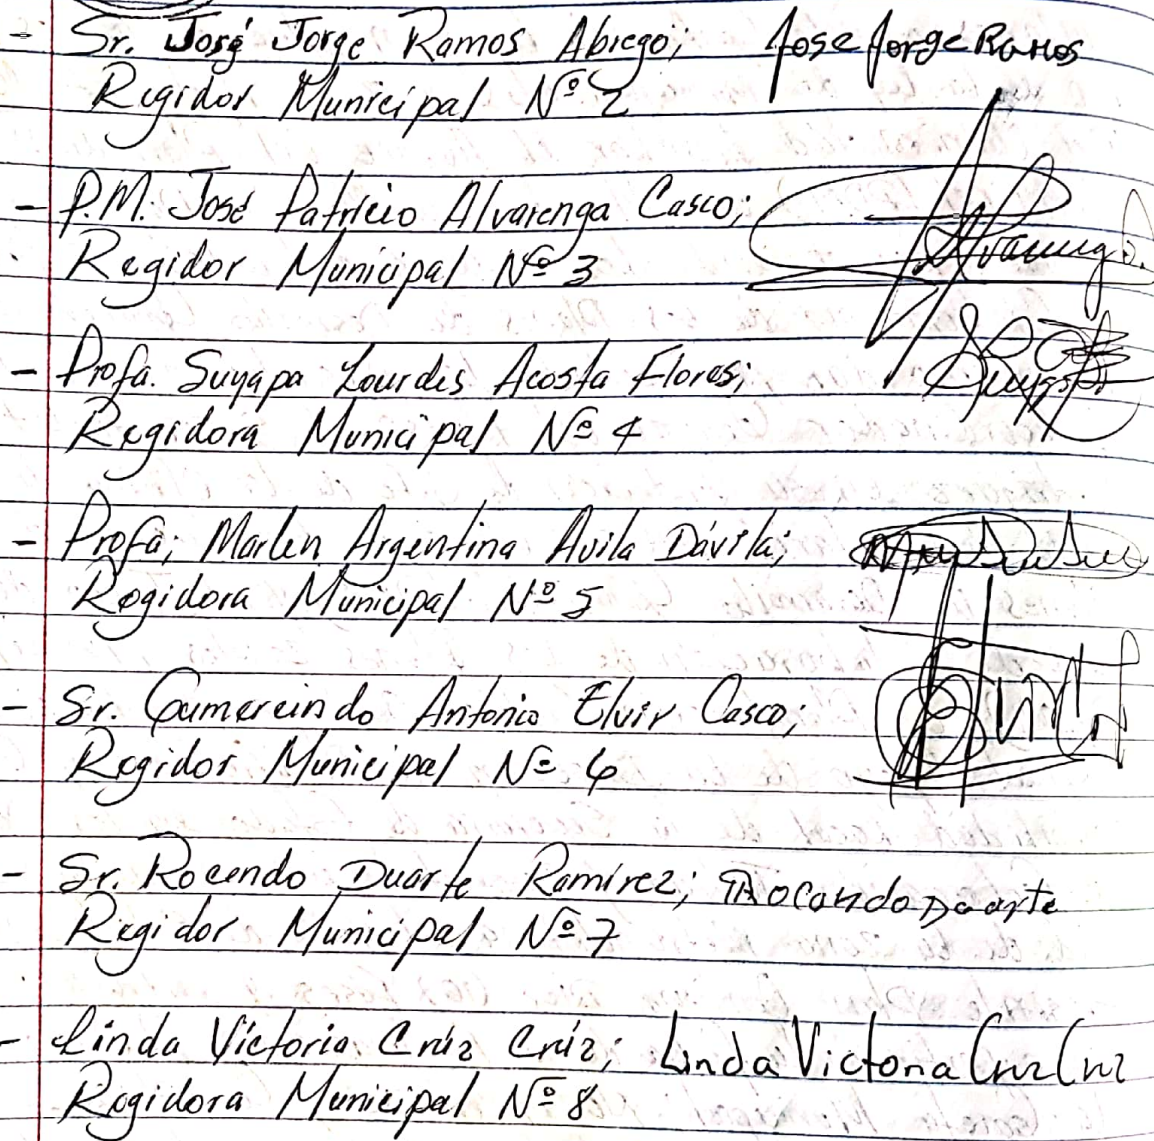 - Sr. José Jorge Ramos Abrego; Jose Jorge Ramos
Regidor Municipal Nº 2
- P.M. José Patricio Alvarenga Casco; Alvarenga
Regidor Municipal Nº 3
- Profa. Suyapa Lourdes Acosta Flores;
Regidora Municipal Nº 4
- Profa; Marlen Argentina Avila Dávila;
Regidora Municipal Nº 5
- Sr. Gumercindo Antonio Elvir Casco;
Regidor Municipal Nº 6
- Sr. Rocendo Duarte Ramírez; Rocendo Duarte
Regidor Municipal Nº 7
- Linda Victoria Crúz Crúz; Linda Victoria Cruz Cruz
Regidora Municipal Nº 8